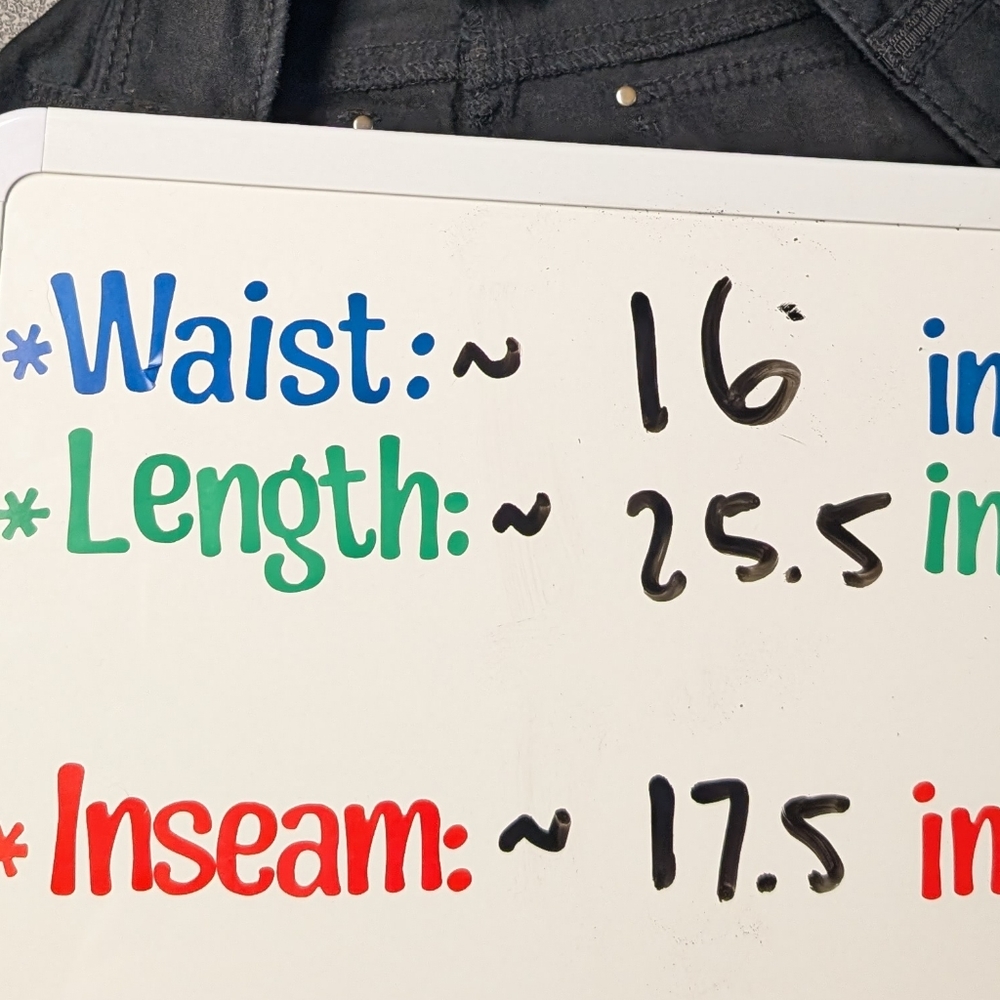 *Waist: ~ 16 in
*Length: ~ 25.5 in
*Inseam: ~ 17.5 in